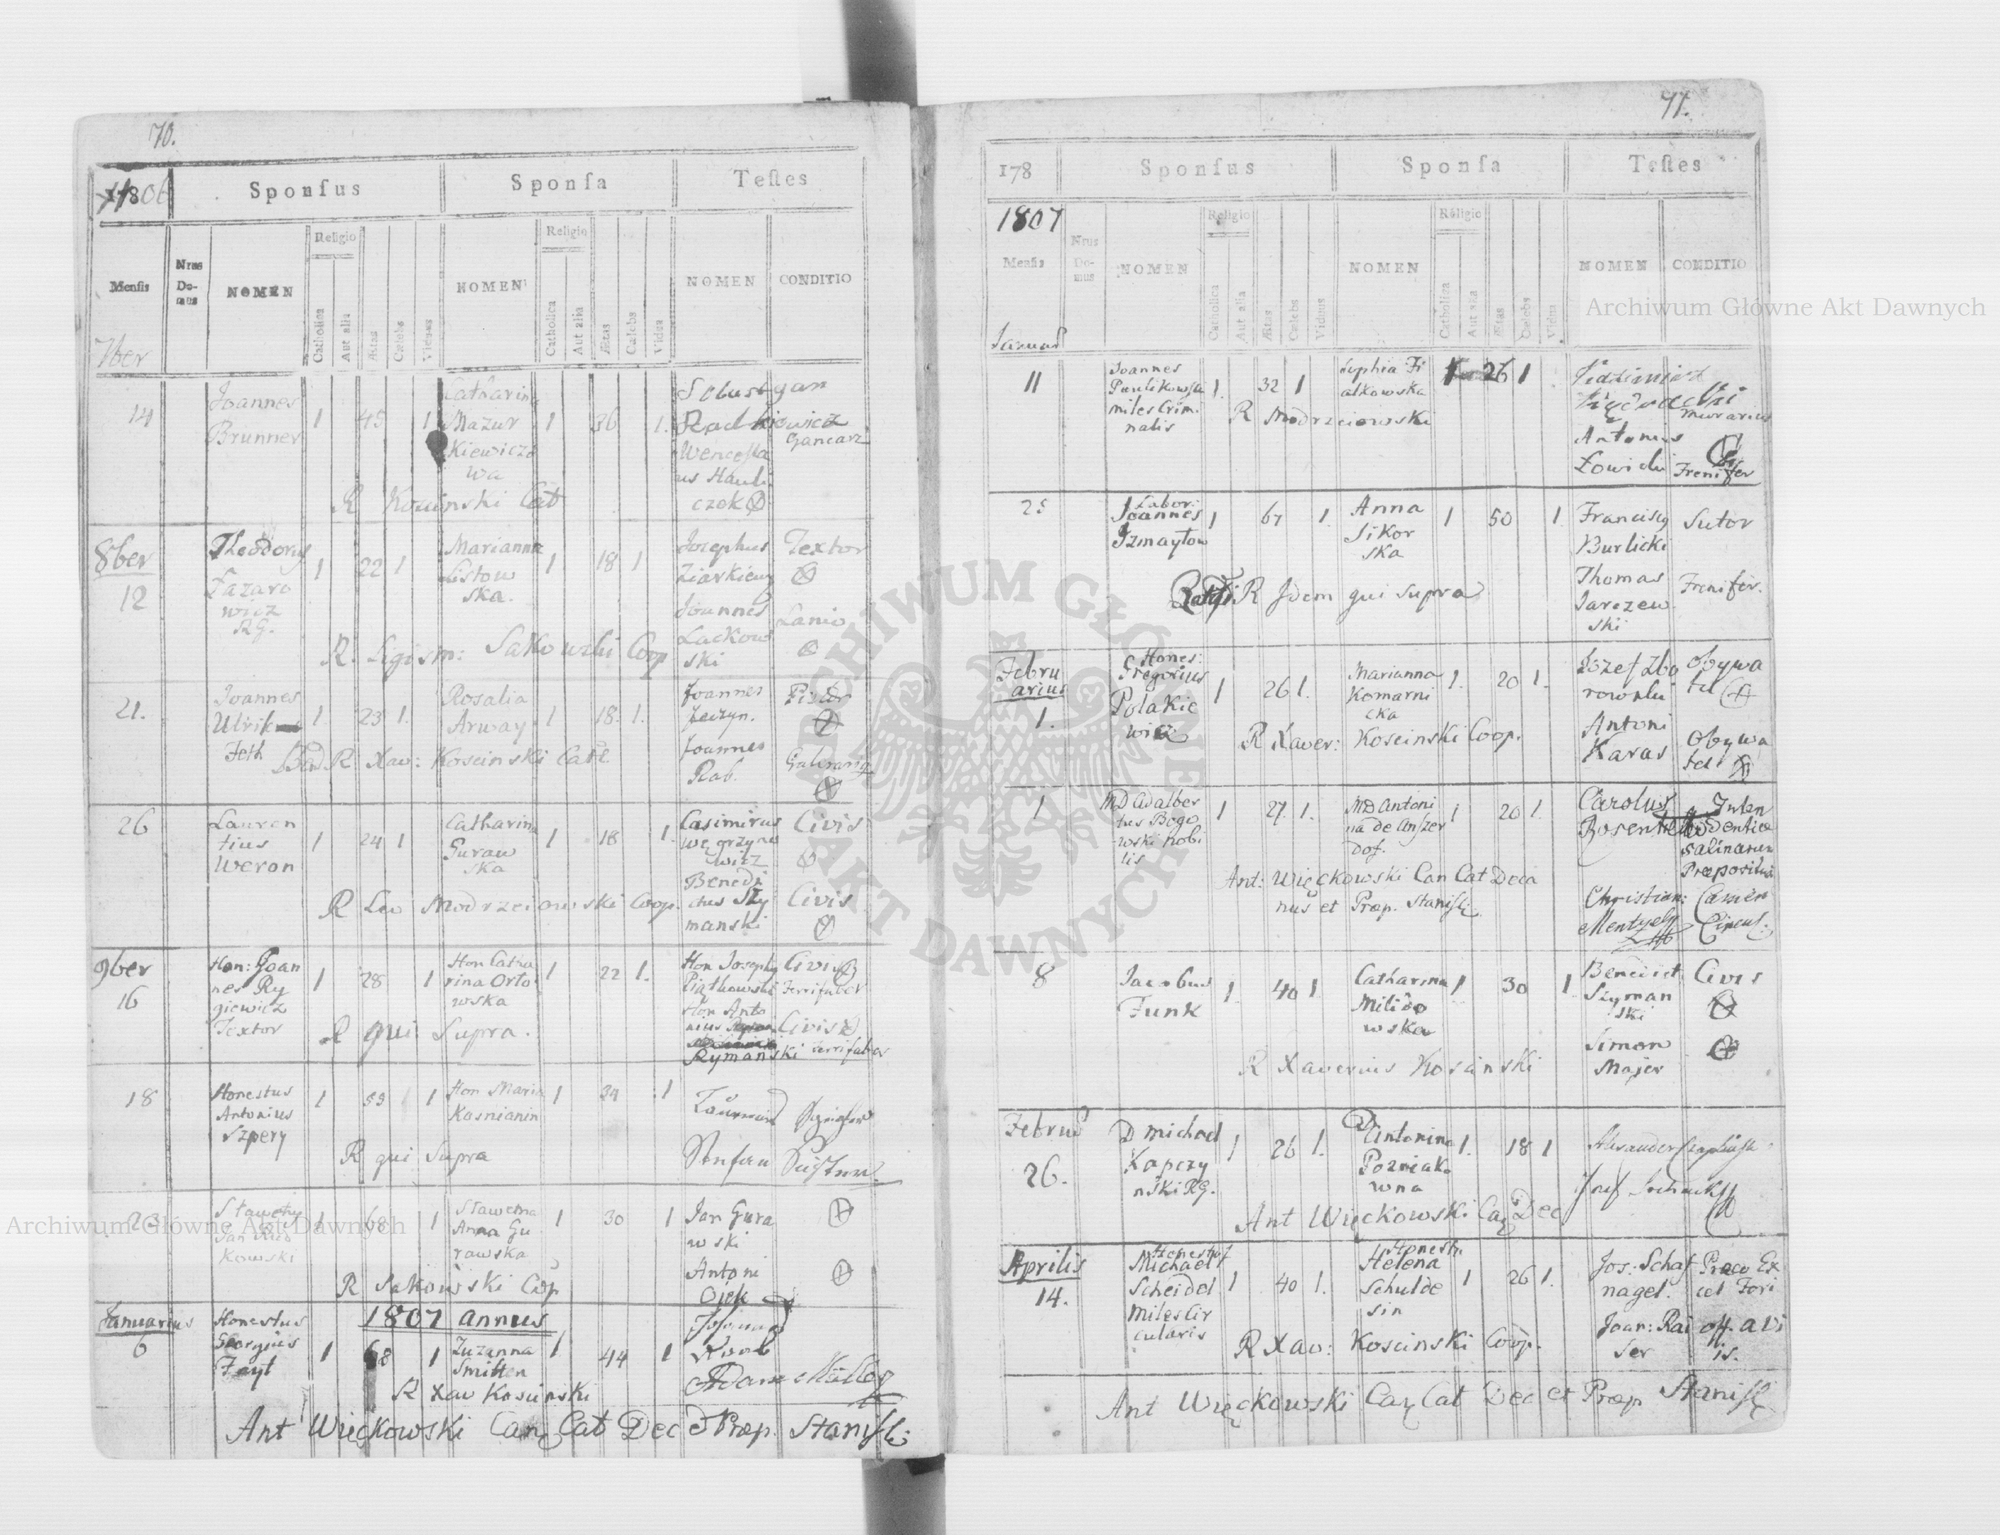 70.
1806
Sponſus
Sponſa
Teſtes
Menſis
Nrus Do-mus
NOMEN
Religio
Catholica
Aut alia
Ætas
Cælebs
Viduus
NOMEN
Religio
Catholica
Aut alia
Ætas
Cælebs
Vidua
NOMEN
CONDITIO
7ber
14
Joannes
Brunner
1
45
1
Catharina
Mazur
Kiewiczo
wa
1
36
1.
Wencesla
us Hauli
czek
Gancarz
R Kosinski Cat
8ber
12
Theodorus
Łazaro
wicz
RG.
1
22
1
Marianna
Listow
ska.
1
18
1
Josephus
Textor
Joannes
Lackow
ski
Lanio
R. Sigism: Sakowski Coop
21.
Joannes
Ulrik
1.
23
1.
Rosalia
Arway
1
18.
1.
Joannes
Pistor
Joannes
Rab.
R. Xav: Koscinski Cate
26
Lauren
tius
Weron
1
24
1
Catharina
Guraw
ska
1
18
1.
Casimirus
Węgrzyno
wicz
Civis
Benedi
ctus Szy
manski
Civis
R Leo Modrzeiowski Coop.
9ber
16
Hon: Joan
nes Ry
giewicz
Textor
1
28
1
Hon Catha
rina Orło
wska
1
22
1.
Hon Joseph
Piątkowski
Civis
Ferrifaber
Hon Anto
nius
Szymanski
Civis
ferrifaber
R qui Supra.
18
Honestus
Antonius
Szpery
1
53
1
Hon Maria
Kasnianin
1
39
1
Stefan
R qui Supra
23
Sławetny
Jan
kowski
1
68
1
Sławetna
Anna Gu
rawska
1
30
1
Jan Gura
wski
Antoni
R Sakowski Coop
Januarius
6
1807 Annus
Honestus
Georgius
Fayt
1
68
1
Zuzanna
Smitten
1
44
1
Adam Müller
R Xav Kosinski
Ant Więckowski Can Cat Dec et Præp. Stanisl:
71.
178
Sponſus
Sponſa
Teſtes
1807
Menſis
Nrus Do-mus
NOMEN
Religio
Catholica
Aut alia
Ætas
Cælebs
Viduus
NOMEN
Religio
Catholica
Aut alia
Ætas
Cælebs
Vidua
NOMEN
CONDITIO
Januar
11
Joannes
Paulikowski
miles Crimi
nalis
1.
32
1
Sophia Fi
alkowska
26
1
murarius
Antonius
Łowicki
Frenifer
R Modrzeiowski
25
Labor:
Joannes
Izmayłow
1
67
1.
Anna
Sikor
ska
1
50
1.
Francisc9
Burlicki
Sutor
Thomas
Jarczew
ski
Frenifer.
R Idem qui Supra
Febru
arius
1.
Hones:
Gregorius
Polakie
wicz
1
26
1.
Marianna
Komarni
cka
1.
20
1.
Iozef Zbo
rowski
Obywa
tel
Antoni
Karas
Obywa
tel
R Xaver: Koscinski Coop.
1
MD Adalber
tus Bogo
wski nobi
lis
1
27.
1.
MD Antoni
na de Anszer
dof.
1
20
1.
Carolus
Salinarum
Præpositus
Christian:
Mentzel
Ant: Więckowski Can Cat Deca
nus et Præp. Stanisl:
8
Jacobus
Funk
1.
40
1.
Catharina
Milido
wska
1
30
1.
Benedict
Szyman
ski
Civis
Simon
Majer
R Xaverius Kosinski
Februa
26.
D Michael
Kapczy
nski RG.
1
26
1.
D Antonina
Pozniako
wna
1.
18
1
Alexander
Ant Więckowski Can Dec
Aprilis
14.
Honestus
Michael
Scheidel
Miles Cir
cularis
1
40
1.
Honesta
Helena
Schulde
sin
1
26
1.
Jos: Schaf
nagel.
Præco Ex
cel Fori
Joan: Rai
ser
off. avi
is.
R Xav: Koscinski Coop.
Ant Więckowski Can Cat Dec et Præp Stanisl:
Archiwum Główne Akt Dawnych
Archiwum Główne Akt Dawnych
ARCHIWUM GŁÓWNE AKT DAWNYCH